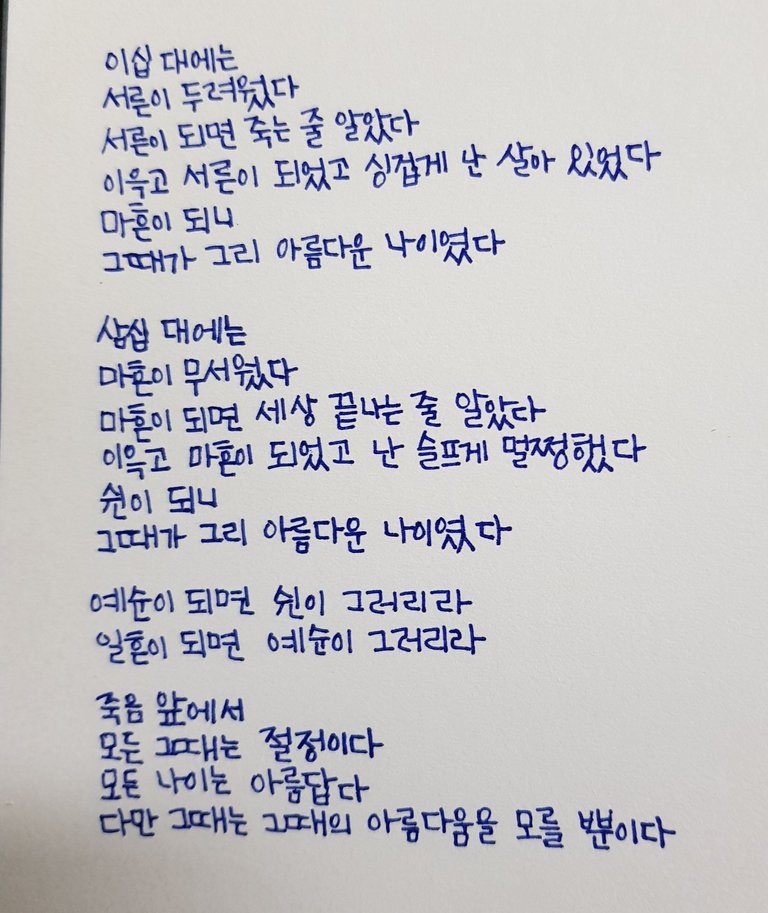 이십 대에는
서른이 두려웠다
서른이 되면 죽는 줄 알았다
이윽고 서른이 되었고 싱겁게 난 살아 있었다
마흔이 되니
그때가 그리 아름다운 나이였다
삼십 대에는
마흔이 무서웠다
마흔이 되면 세상 끝나는 줄 알았다
이윽고 마흔이 되었고 난 슬프게 멀쩡했다
쉰이 되니
그때가 그리 아름다운 나이였다
예순이 되면 쉰이 그러리라
일흔이 되면 예순이 그러리라
죽음 앞에서
모든 그때는 절정이다
모든 나이는 아름답다
다만 그때는 그때의 아름다움을 모를 뿐이다